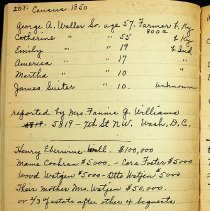 Census 1850
George A. Waller Sr. age 57. Farmer b. Ky
Catherine " 55 " " Ky
Emily " 19 " " Ind
America " 17 "
Martha " 10 "
James Suter " 10 . unknown
reported by Mrs. Fannie G. Williams
5819 - 7th St N.W. Wash, D.C.
Henry will. $100,000
Mama Cochran $5000. - Cora Foster $5000
Wood Watzen $5000 - Otto Watzen 5000
Their mother Mrs. Watzen $50,000.
or 2/3 of estate after other 4 bequests